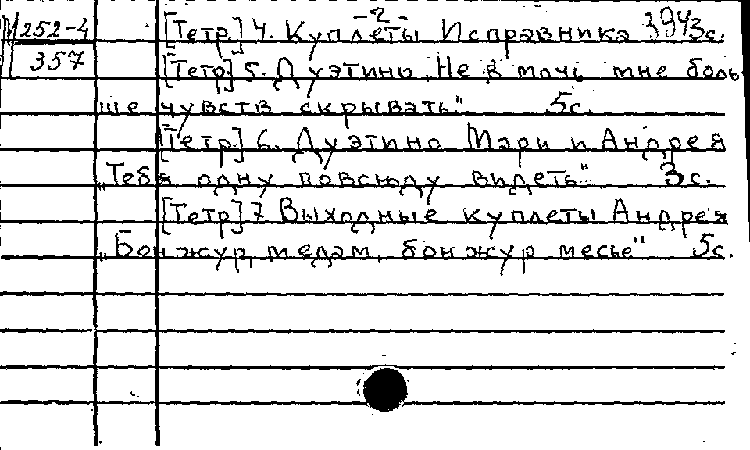 -2-
М 252-4
357
394
[Тетр] 4. Куплеты Исправника 3с.
[Тетр] 5. Дуэтино „Не в мочь мне боль-
ше чувств скрывать" 5с.
[Тетр] 6. Дуэтино Мэри и Андрея
„Тебя одну повсюду видеть" 3с.
[Тетр] 7 Выходные куплеты Андрея
„Бонжур, медам, бонжур месье" 5с.